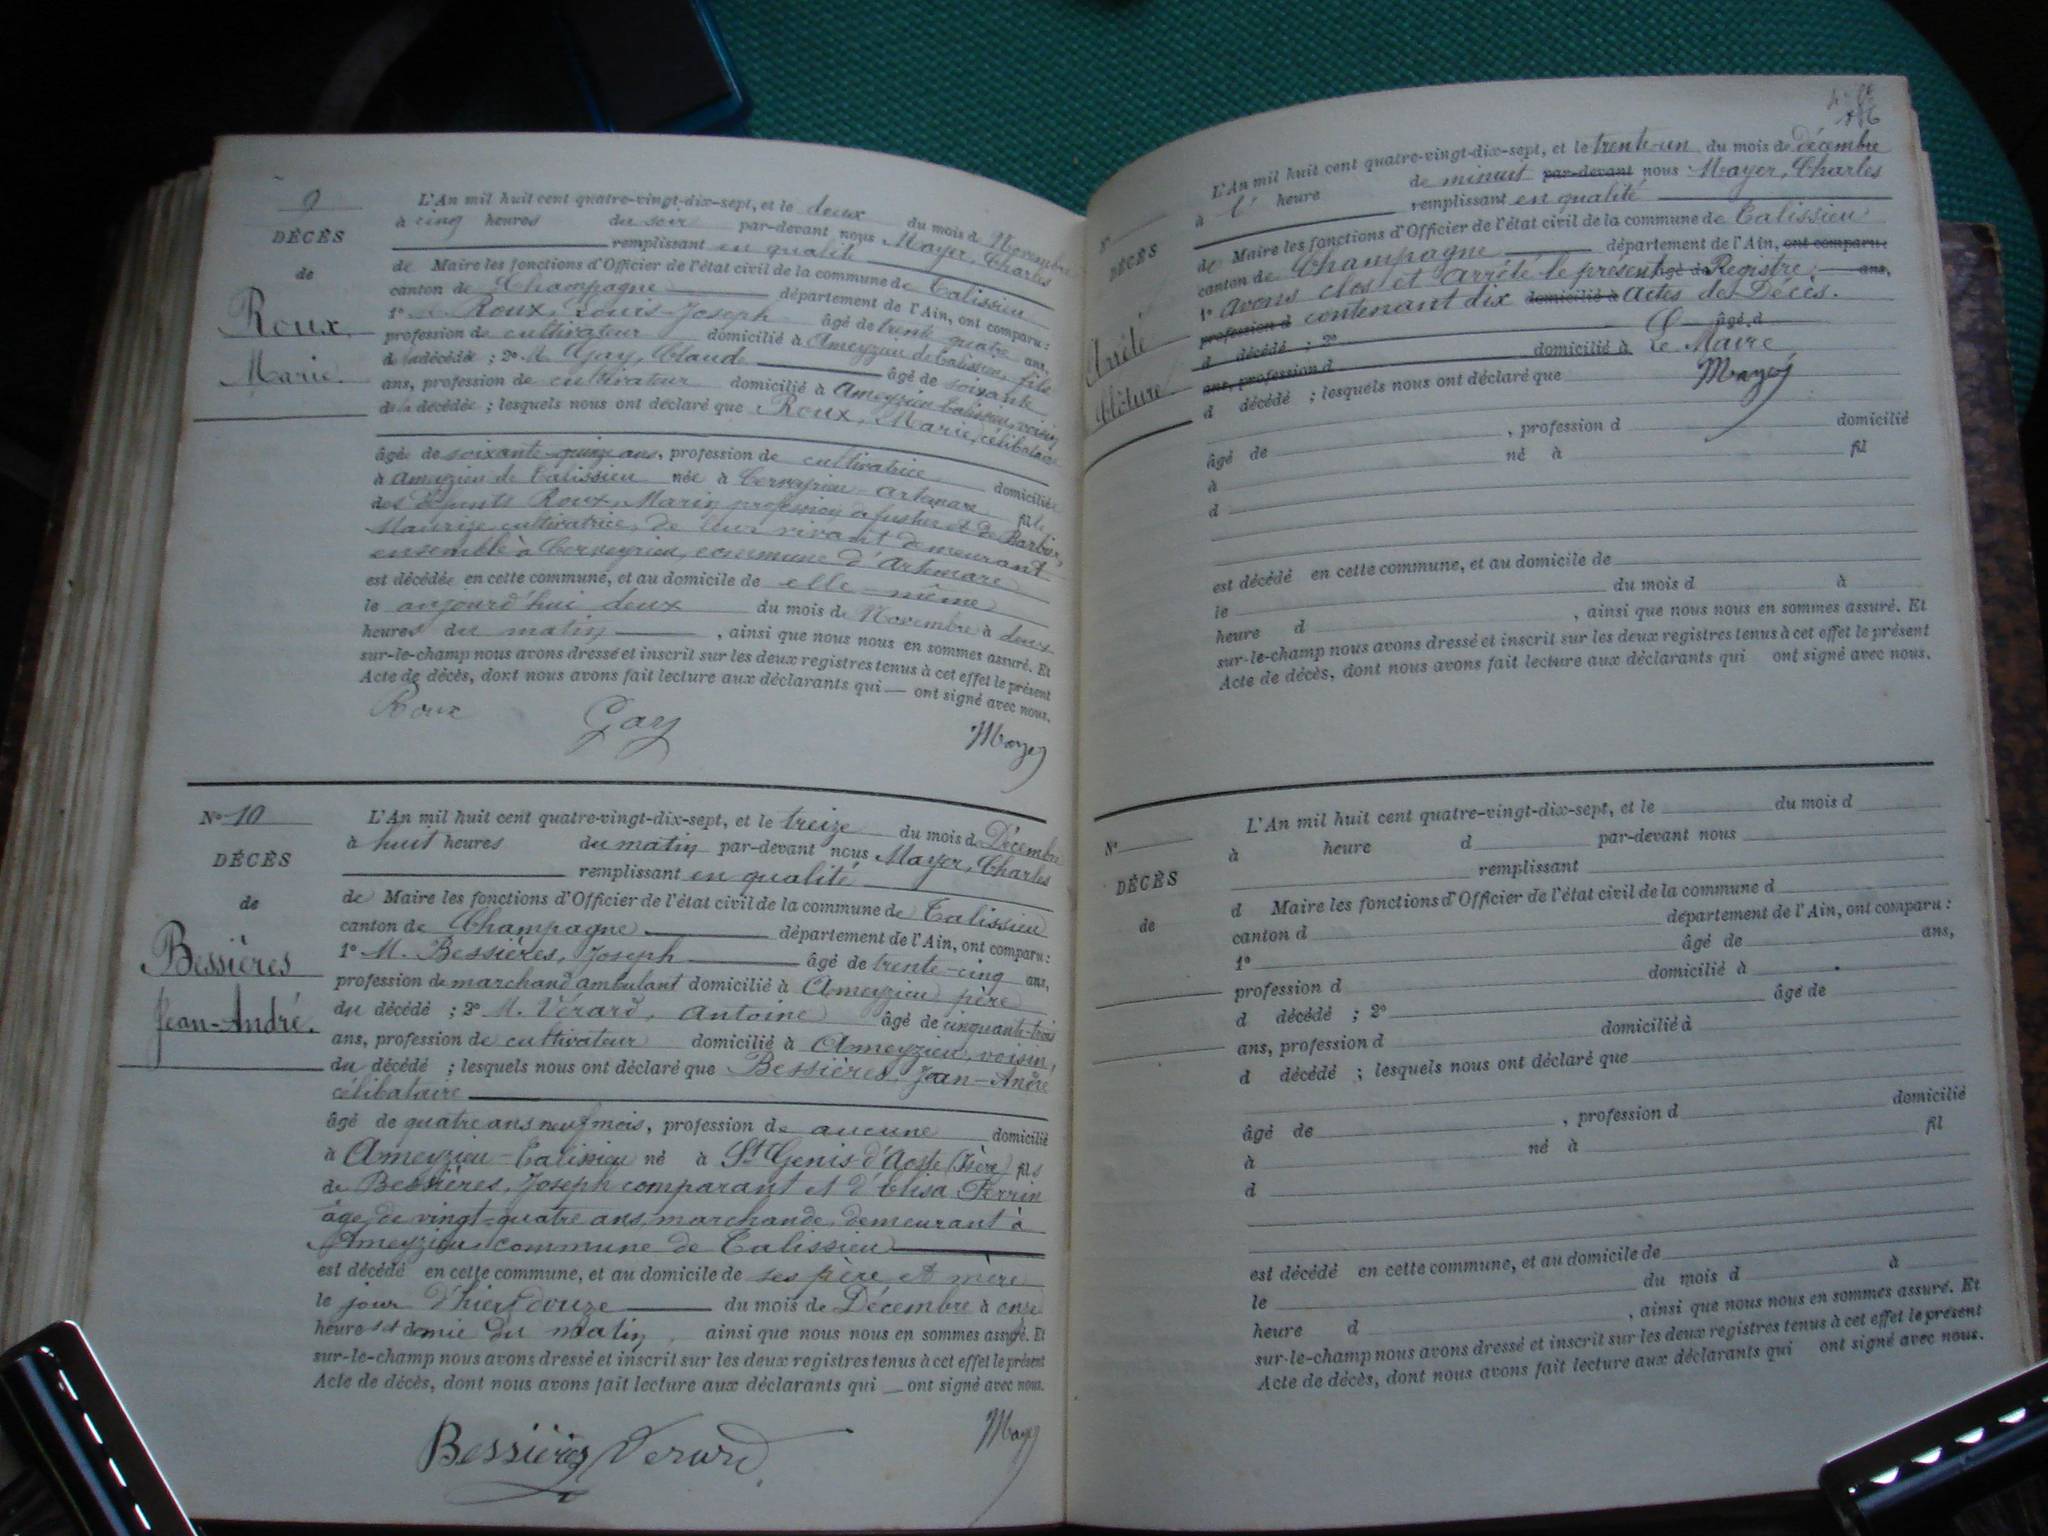 9
DÉCÈS
de
Roux
Marie
L'An mil huit cent quatre-vingt-dix-sept, et le deux du mois de Novembre
à cinq heures du soir par-devant nous Mayer, Charles
remplissant en qualité
de Maire les fonctions d'Officier de l'état civil de la commune de Talissieu
canton de Champagne département de l'Ain, ont comparu :
1° Roux, Louis-Joseph âgé de trente quatre ans,
profession de cultivateur domicilié à Ameyzieu de Talissieu, fils
de la décédée ; 2° M. Gay, Claude âgé de soixante
ans, profession de cultivateur domicilié à Ameyzieu Talissieu, voisin
de la décédée ; lesquels nous ont déclaré que Roux, Marie, célibataire
âgée de soixante-quinze ans, profession de cultivatrice domiciliée
à Ameyzieu de Talissieu née à Cerveyrieu Artemare fille
des défunts Roux, Marin profession et de Barbier,
Maurize cultivatrice, de leur vivant demeurant
ensemble à Cerveyrieu, commune d'Artemare
est décédée en cette commune, et au domicile de elle-même
le aujourd'hui deux du mois de Novembre à deux
heures du matin , ainsi que nous nous en sommes assuré. Et
sur-le-champ nous avons dressé et inscrit sur les deux registres tenus à cet effet le présent
Acte de décès, dont nous avons fait lecture aux déclarants qui — ont signé avec nous.
Roux Gay Mayer
N° 10
DÉCÈS
de
Bessières
Jean-André.
L'An mil huit cent quatre-vingt-dix-sept, et le treize du mois de Décembre
à huit heures du matin par-devant nous Mayer, Charles
remplissant en qualité
de Maire les fonctions d'Officier de l'état civil de la commune de Talissieu
canton de Champagne département de l'Ain, ont comparu :
1° M. Bessières, Joseph âgé de trente-cinq ans,
profession de marchand ambulant domicilié à Ameyzieu père
du décédé ; 2° M. Vérard, Antoine âgé de cinquante-trois
ans, profession de cultivateur domicilié à Ameyzieu, voisin,
du décédé ; lesquels nous ont déclaré que Bessières, Jean-André
célibataire
âgé de quatre ans neuf mois, profession de aucune domicilié
à Ameyzieu-Talissieu né à St Genis d'Aoste (Isère) fils
de Bessières, Joseph comparant et d'Elisa Perrin
âgé de vingt-quatre ans, marchande, demeurant à
Ameyzieu, commune de Talissieu
est décédé en cette commune, et au domicile de ses père et mère
le jour d'hier douze du mois de Décembre à onze
heures et demie du matin, ainsi que nous nous en sommes assuré. Et
sur-le-champ nous avons dressé et inscrit sur les deux registres tenus à cet effet le présent
Acte de décès, dont nous avons fait lecture aux déclarants qui — ont signé avec nous.
Bessières Verard Mayer
N°
DÉCÈS
Arrêté
Clôture
L'An mil huit cent quatre-vingt-dix-sept, et le trente-un du mois de décembre
à l' heure de minuit par-devant nous Mayer, Charles
remplissant en qualité
de Maire les fonctions d'Officier de l'état civil de la commune de Talissieu
canton de Champagne département de l'Ain, ont comparu :
1° avons clos et arrêté le présent âgé de Registre, ans,
profession d contenant dix domicilié à actes de Décès.
d décédé ; 2° âgé d
ans, profession d domicilié à Le Maire
d décédé ; lesquels nous ont déclaré que Mayer
âgé de , profession d domicilié
à né à fil
d
est décédé en cette commune, et au domicile de
le du mois d à
heure d , ainsi que nous nous en sommes assuré. Et
sur-le-champ nous avons dressé et inscrit sur les deux registres tenus à cet effet le présent
Acte de décès, dont nous avons fait lecture aux déclarants qui ont signé avec nous.
N°
DÉCÈS
de
L'An mil huit cent quatre-vingt-dix-sept, et le du mois d
à heure d par-devant nous
remplissant
d Maire les fonctions d'Officier de l'état civil de la commune d
canton d département de l'Ain, ont comparu :
1° âgé de ans,
profession d domicilié à
d décédé ; 2° âgé de
ans, profession d domicilié à
d décédé ; lesquels nous ont déclaré que
âgé de , profession d domicilié
à né à fil
d
est décédé en cette commune, et au domicile de
le du mois d à
heure d , ainsi que nous nous en sommes assuré. Et
sur-le-champ nous avons dressé et inscrit sur les deux registres tenus à cet effet le présent
Acte de décès, dont nous avons fait lecture aux déclarants qui ont signé avec nous.